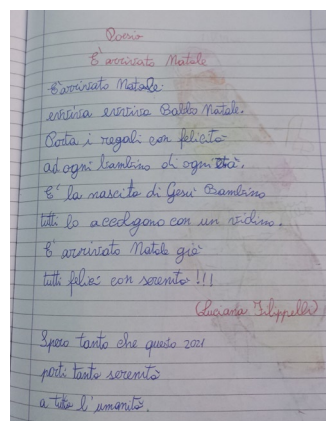 Poesia
E' arrivato Natale
E' arrivato Natale
evviva evviva Babbo Natale.
Porta i regali con felicità
ad ogni bambino di ogni età.
E' la nascita di Gesù Bambino
tutti lo accolgono con un
E' arrivato Natale già
tutti felici con serenità !!!
(Luciana Filippelli)
Spero tanto che questo 2021
porti tanta serenità
a tutta l'umanità.